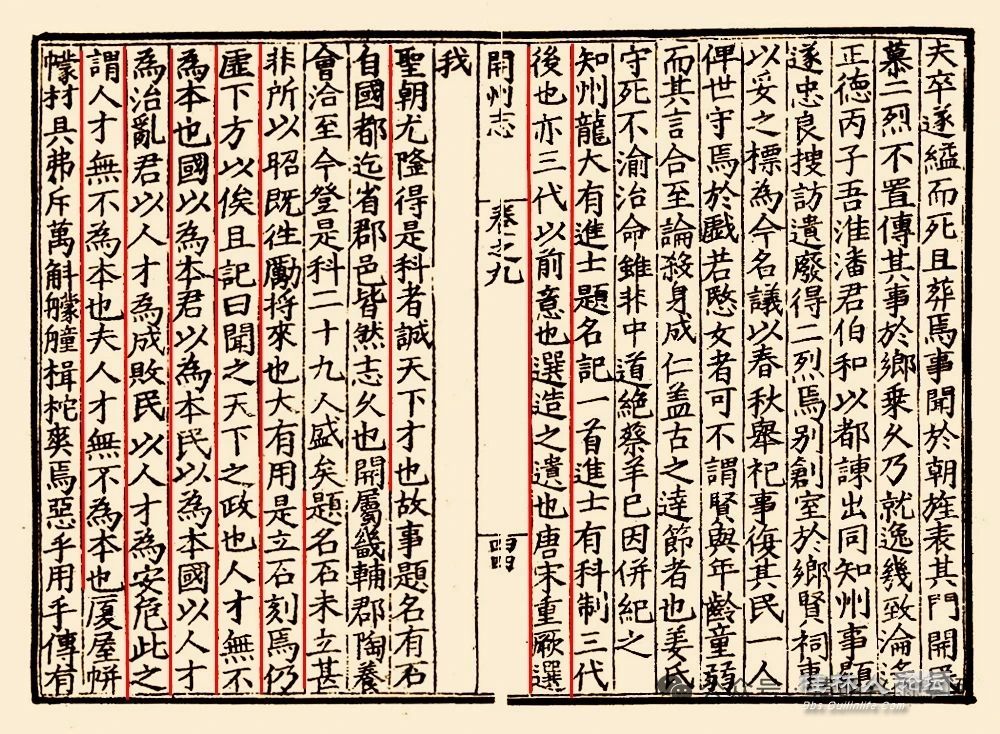 夫卒遂縊而死且葬焉事聞於朝旌表其門開
慕二烈不置傳其事於鄉乗久乃就逸幾致淪
正德丙子吾淮潘君伯和以都諫出同知州事顯
遂忠良搜訪遺廢得二烈焉別創室於鄉賢祠
以妥之標為今名議以春秋舉祀事復其民一人
俾世守焉於戲若愍女者可不謂賢與年齡童弱
而其言合至論殺身成仁盖古之達節者也姜氏
守死不渝治命雖非中道絶蔡羊巳因併紀之
知州龍大有進士題名記一首進士有科制三代
後也亦三代以前意也選造之遺也唐宋重厥選
開州志 卷之九 四四
我
聖朝尤隆得是科者誠天下才也故事題名有石
自國都迄省郡邑皆然志久也開屬畿輔郡陶養
會洽至今登是科二十九人盛矣題名石未立甚
非所以昭既徃勵将來也大有用是立石刻焉仍
虛下方以俟且記曰聞之天下之政也人才無不
為本也國以為本君以為本民以為本國以人才
為治亂君以人才為成敗民以人才為安危此之
謂人才無不為本也夫人才無不為本也厦屋帡
幪材具弗斥萬斛艨艟楫柁爽焉惡乎用乎傳有
桂林人论坛
Bbs.Guilinlife.Com